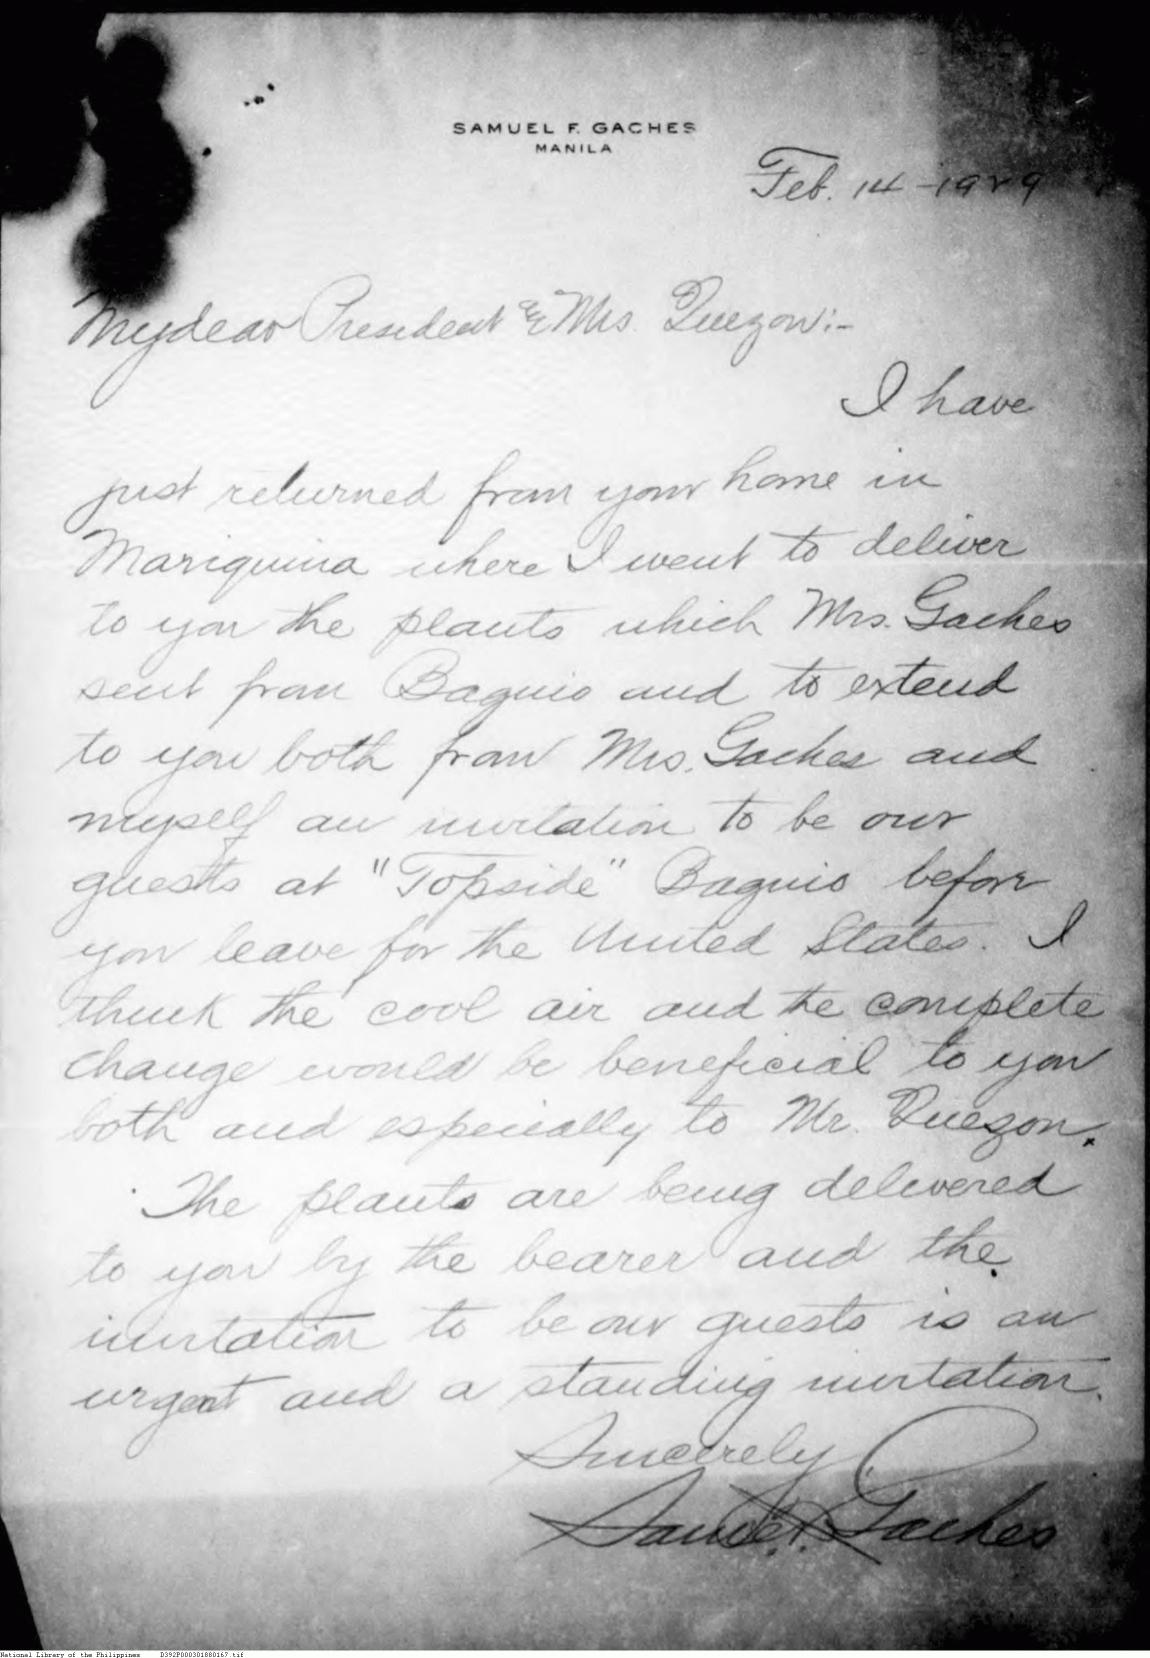 SAMUEL F. GACHES
MANILA
Feb. 14 - 1929
My dear President & Mrs. Quezon:-
I have
just returned from your home in
Mariquina where I went to deliver
to you the plants which Mrs. Gaches
sent from Baguio and to extend
to you both from Mrs. Gaches and
myself an invitation to be our
guests at "Topside" Baguio before
you leave for the United States. I
think the cool air and the complete
change would be beneficial to you
both and especially to Mr. Quezon.
The plants are being delivered
to you by the bearer and the
invitation to be our guests is an
urgent and a standing invitation.
Sincerely,
Sam'l. F. Gaches
National Library of the Philippines D392P000301880167.tif